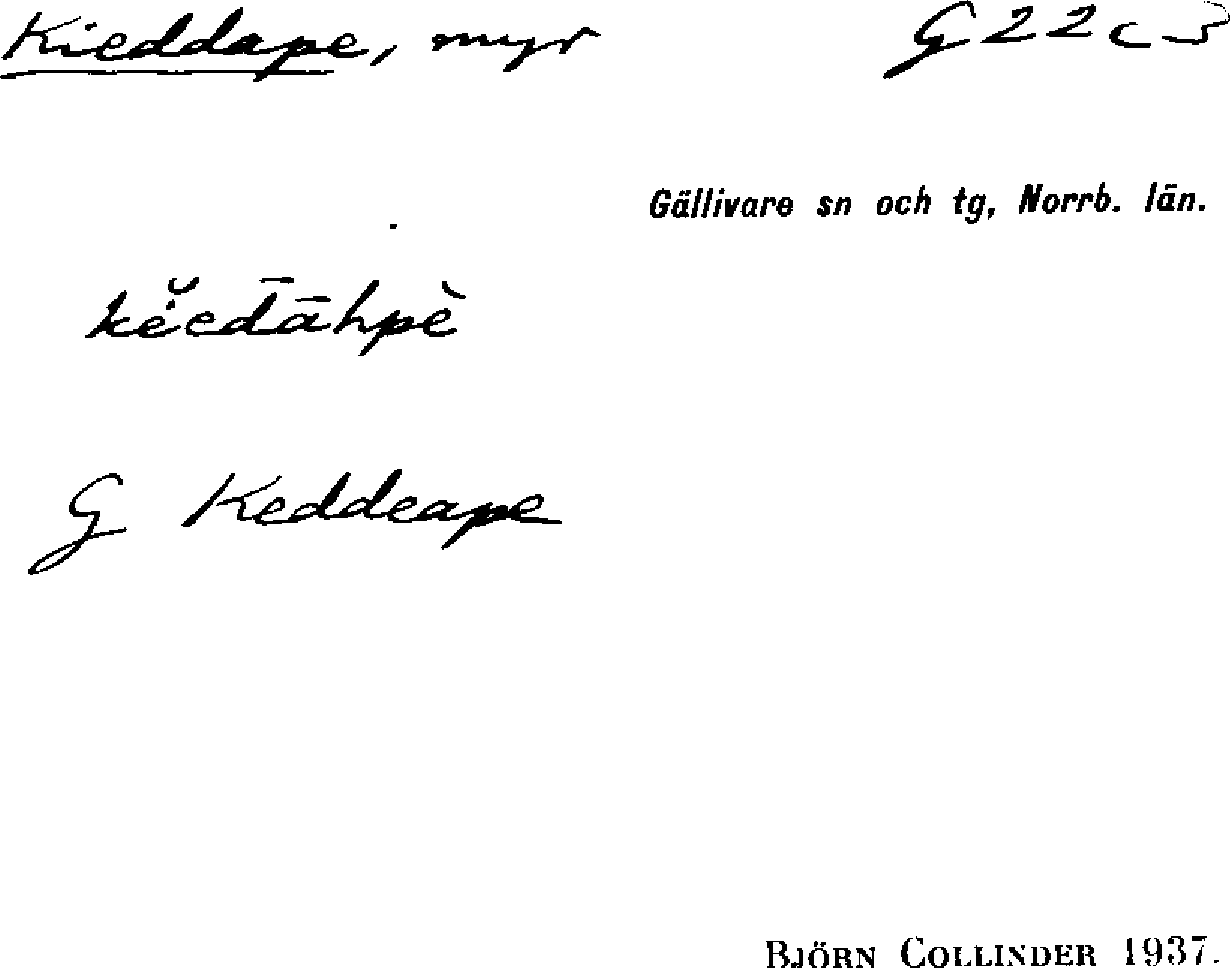 Kieddape, myr G22c3
Gällivare sn och tg, Norrb. län.
kĕ̀ed̄āhpè
G Keddeape
BJÖRN COLLINDER 1937.